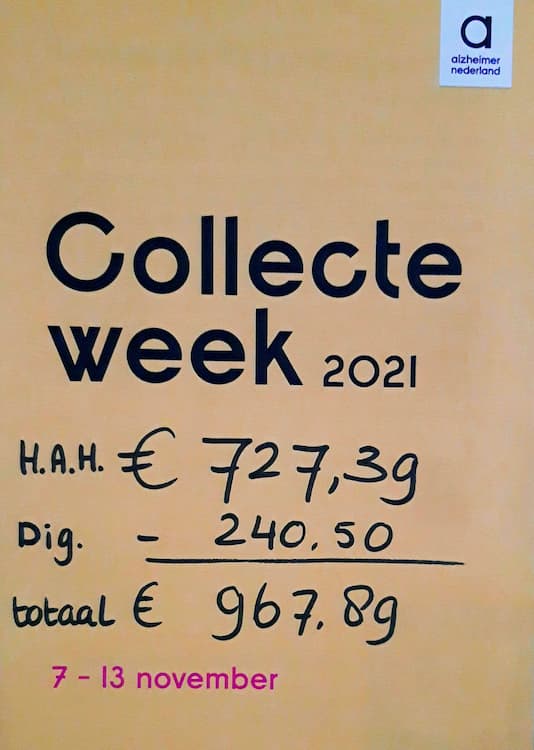 a
alzheimer
nederland
Collecte
week 2021
H.A.H. € 727,39
Dig. - 240.50
totaal € 967.89
7 - 13 november